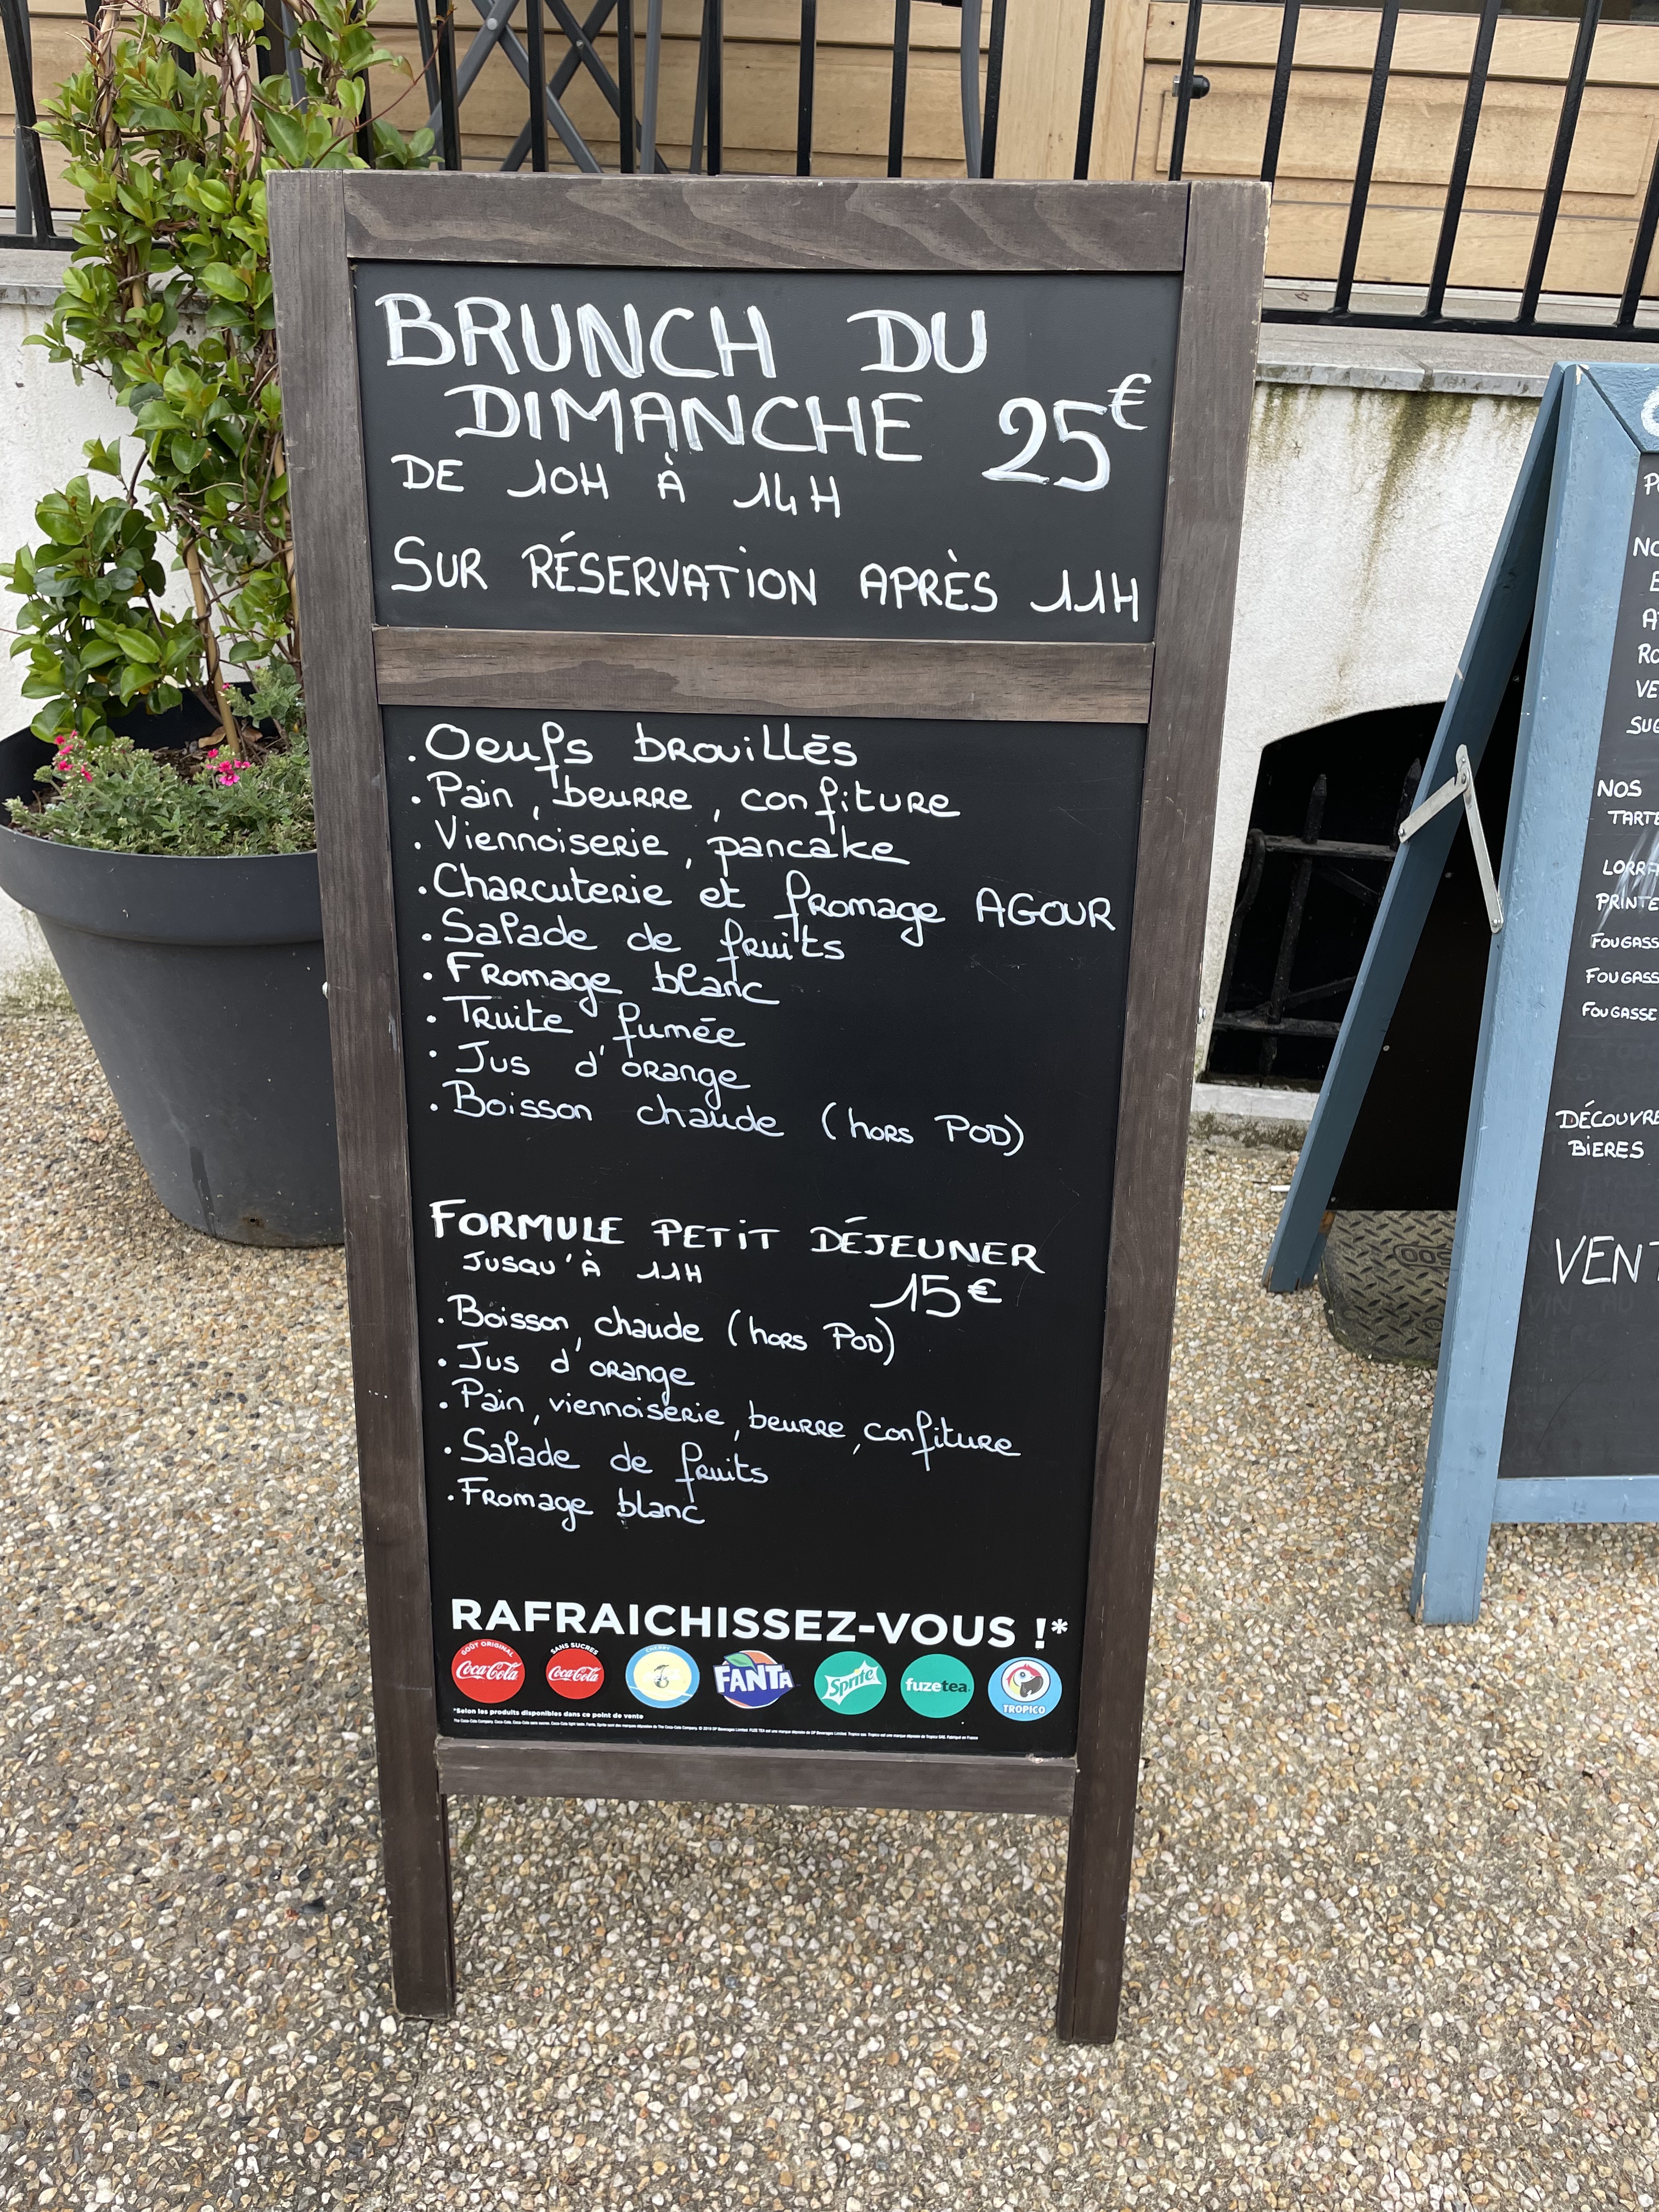 BRUNCH DU
DIMANCHE 25€
DE 10H À 14H
SUR RÉSERVATION APRÈS 11H
. Oeufs brouillés
. Pain, beurre, confiture
. Viennoiserie, pancake
. Charcuterie et fromage AGOUR
. Salade de fruits
. Fromage blanc
. Truite fumée
. Jus d'orange
. Boisson chaude (hors POD)
FORMULE PETIT DÉJEUNER
JUSQU'À 11H 15€
. Boisson chaude (hors POD)
. Jus d'orange
. Pain, viennoiserie, beurre, confiture
. Salade de fruits
. Fromage blanc
RAFRAICHISSEZ-VOUS !*
GOÛT ORIGINAL
Coca-Cola
SANS SUCRES
Coca-Cola
CHERRY
FANTA
Sprite
fuzetea
TROPICO
*Selon les produits disponibles dans ce point de vente
NOS
TARTE
LORRA
PRINTE
FOUGASS
FOUGASS
FOUGASSE
DÉCOUVRE
BIERES
VENT